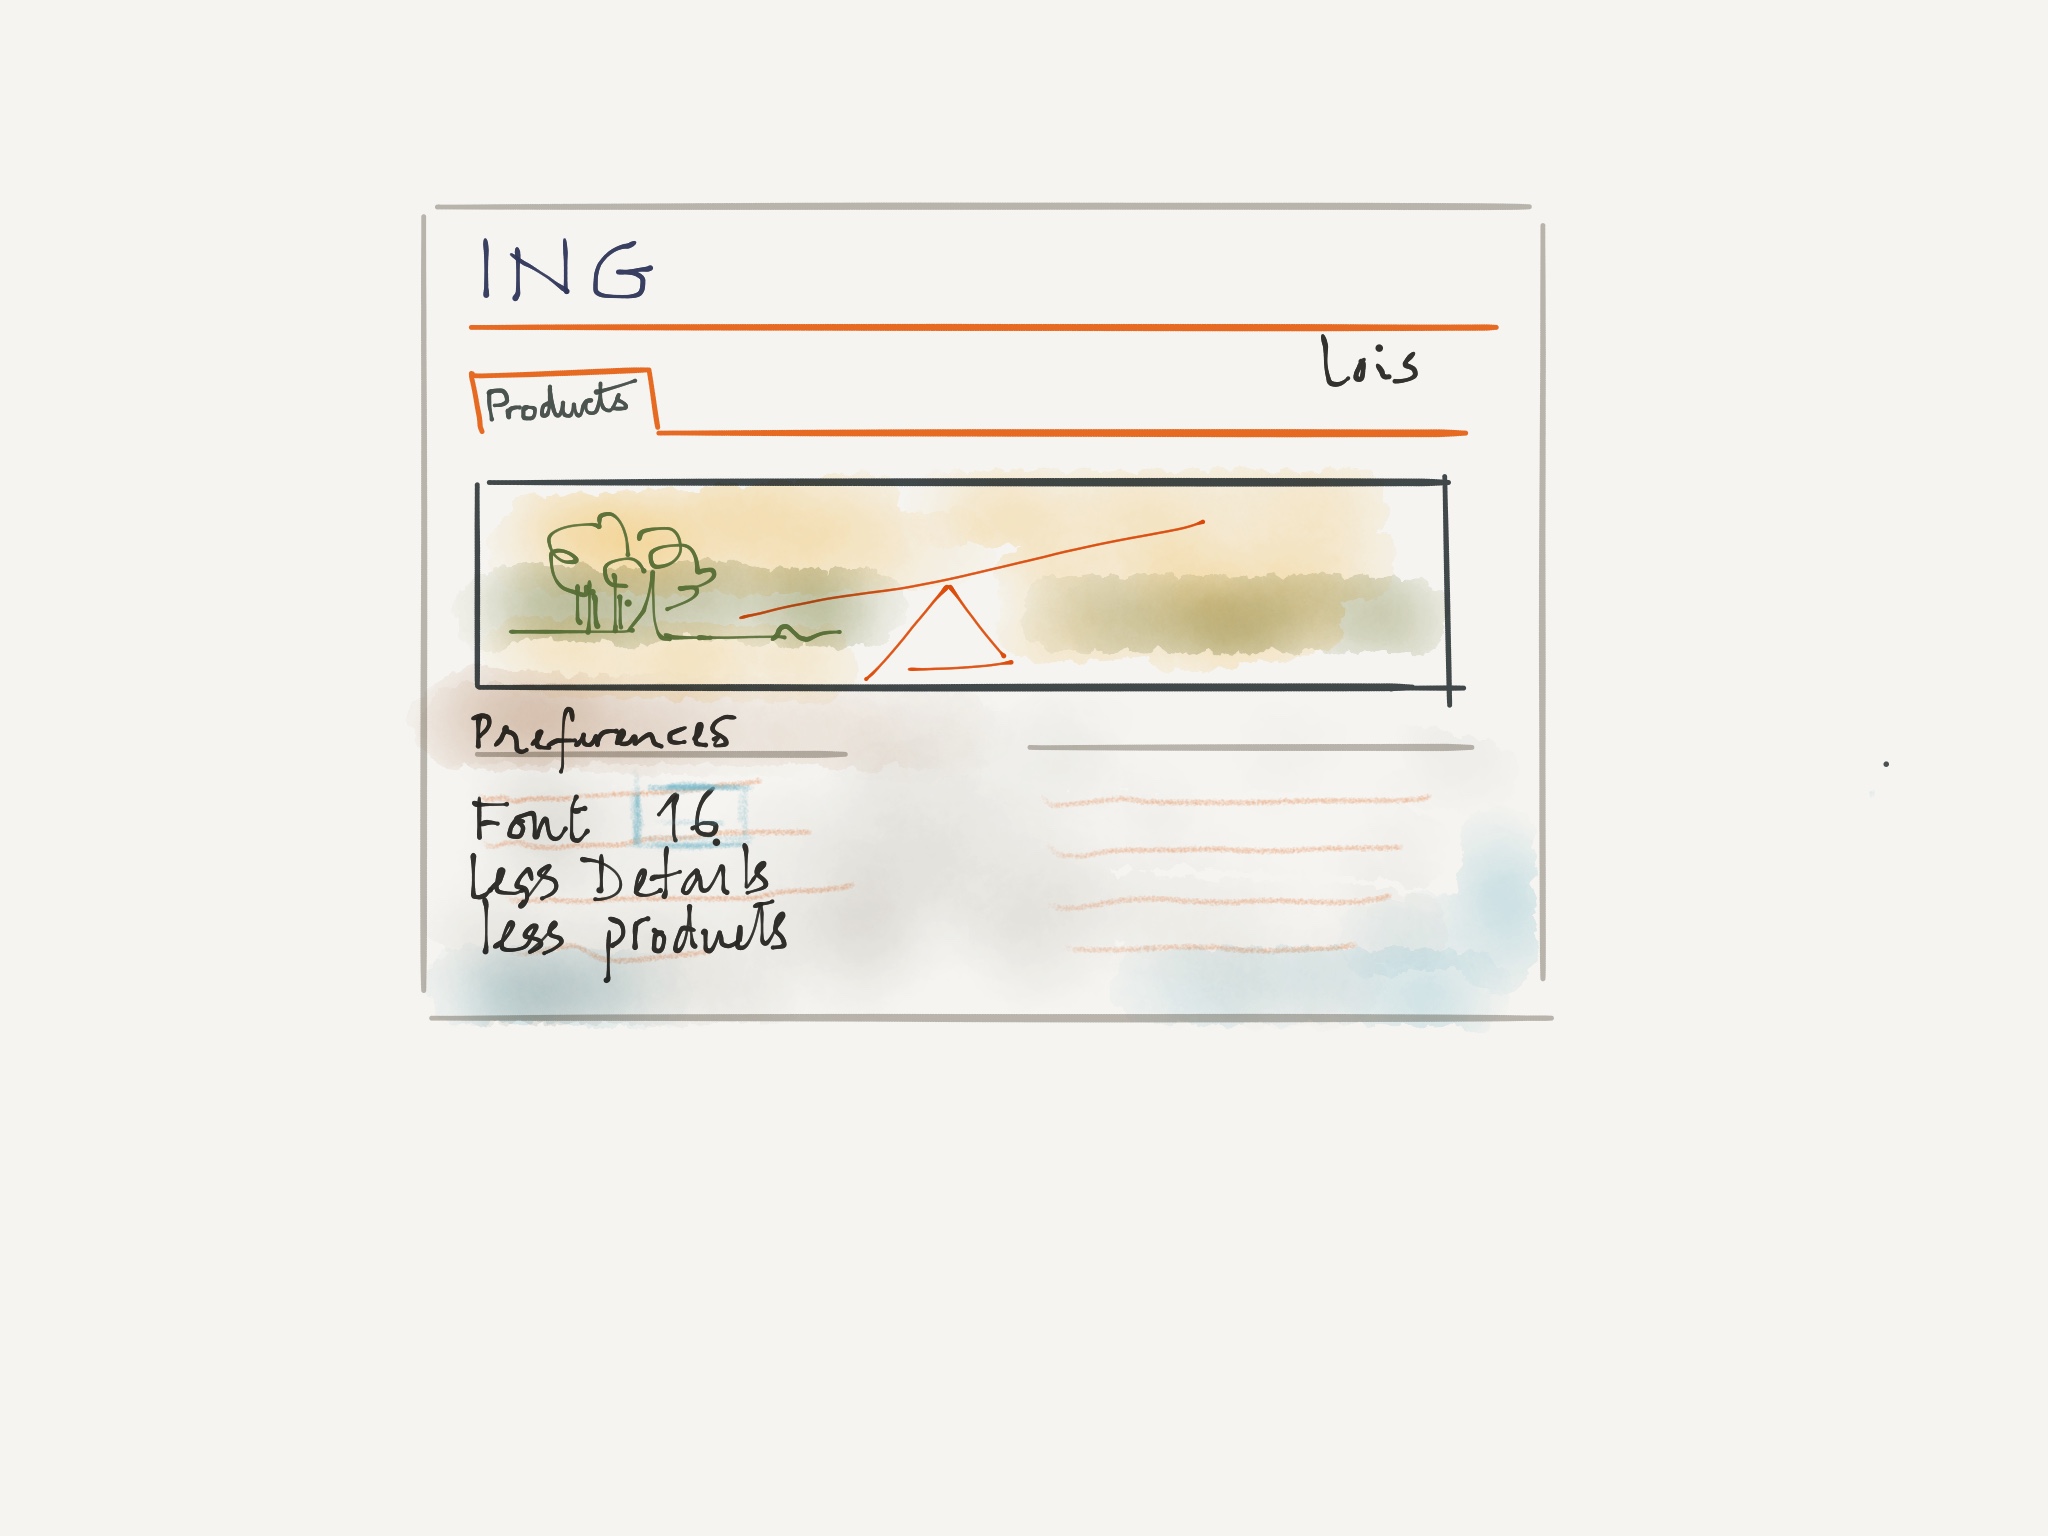 ING
Lois
Products
Preferences
Font 16
Less Details
less products